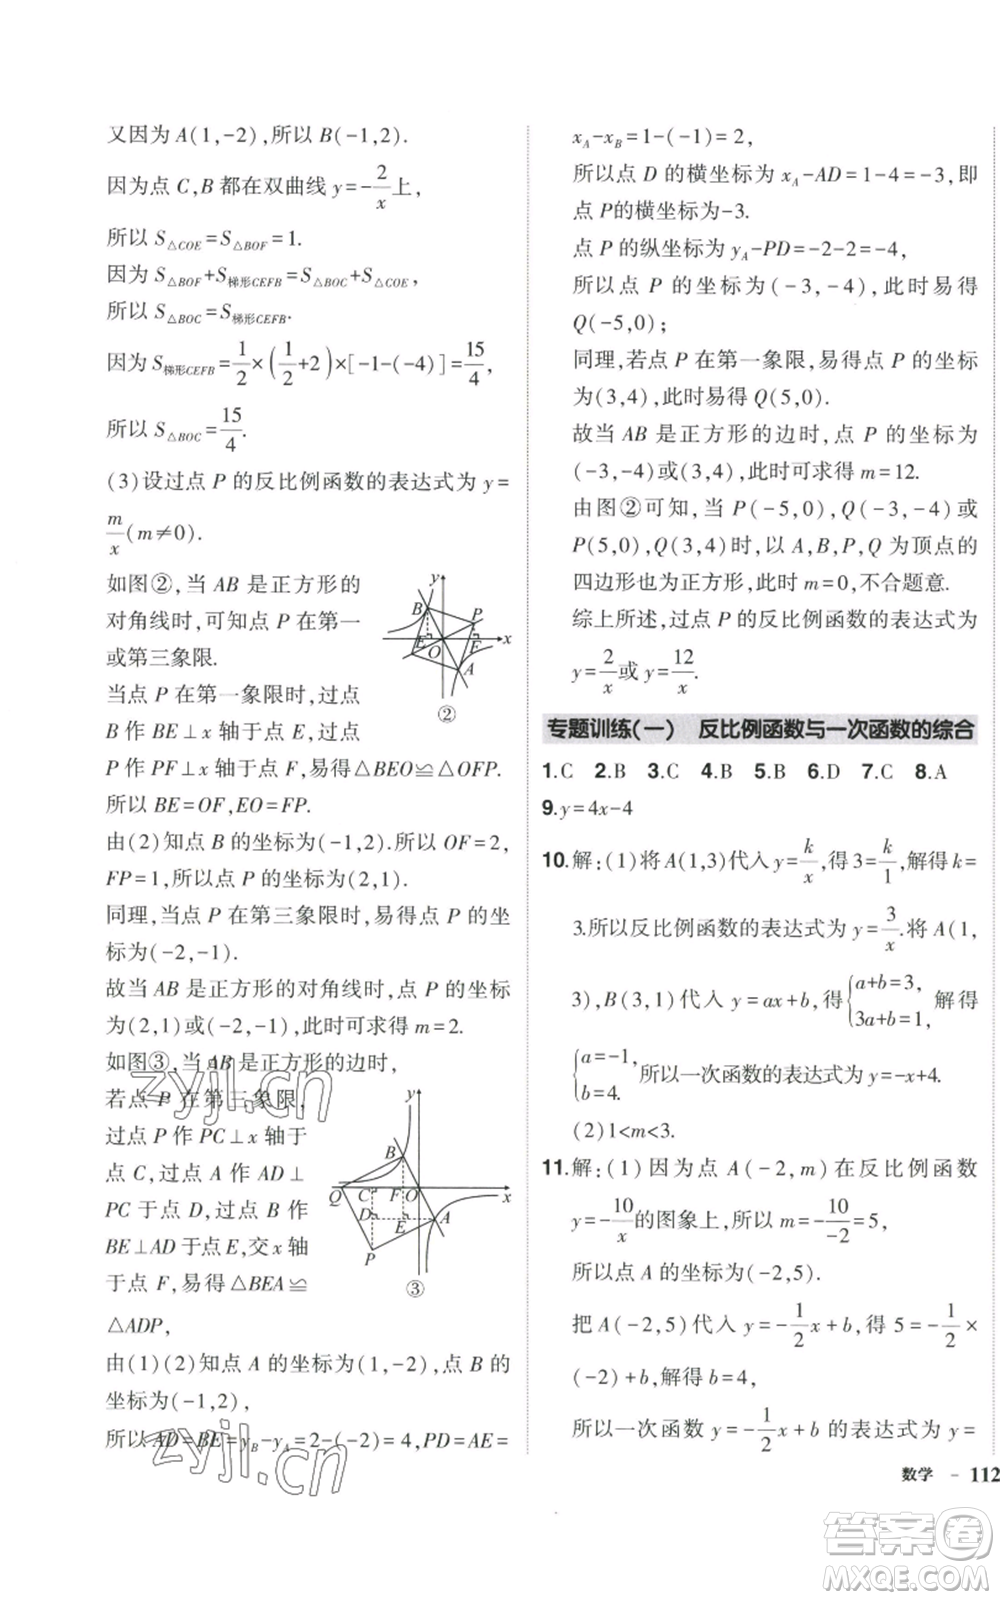 又因为 A(1,-2),所以 B(-1,2).
因为点 C,B 都在双曲线 y=-2/x 上,
所以 S△COE=S△BOF=1.
因为 S△BOF+S梯形CEFB=S△BOC+S△COE,
所以 S△BOC=S梯形CEFB.
因为 S梯形CEFB=1/2×(1/2+2)×[-1-(-4)]=15/4,
所以 S△BOC=15/4.
(3)设过点 P 的反比例函数的表达式为 y=
m/x(m≠0).
如图②,当 AB 是正方形的
对角线时,可知点 P 在第一
或第三象限.
当点 P 在第一象限时,过点
B 作 BE⊥x 轴于点 E,过点
P 作 PF⊥x 轴于点 F,易得△BEO≌△OFP.
所以 BE=OF,EO=FP.
由(2)知点 B 的坐标为(-1,2).所以 OF=2,
FP=1,所以点 P 的坐标为(2,1).
同理,当点 P 在第三象限时,易得点 P 的坐
标为(-2,-1).
故当 AB 是正方形的对角线时,点 P 的坐标
为(2,1)或(-2,-1),此时可求得 m=2.
如图③,当 AB 是正方形的边时,
若点 P 在第三象限,
过点 P 作 PC⊥x 轴于
点 C,过点 A 作 AD⊥
PC 于点 D,过点 B 作
BE⊥AD 于点 E,交 x 轴
于点 F,易得△BEA≌
△ADP,
由(1)(2)知点 A 的坐标为(1,-2),点 B 的
坐标为(-1,2),
所以 AD=BE=yB-yA=2-(-2)=4,PD=AE=
y
B
P
E
O
F
x
A
②
y
B
Q
C
F
O
x
D
E
A
P
③
zyjl.cn
zyjl.cn
xA-xB=1-(-1)=2,
所以点 D 的横坐标为 xA-AD=1-4=-3,即
点 P的横坐标为-3.
点 P 的纵坐标为 yA-PD=-2-2=-4,
所以点 P 的坐标为(-3,-4),此时易得
Q(-5,0);
同理,若点 P 在第一象限,易得点 P 的坐标
为(3,4),此时易得 Q(5,0).
故当 AB 是正方形的边时,点 P 的坐标为
(-3,-4)或(3,4),此时可求得 m=12.
由图②可知,当 P(-5,0),Q(-3,-4)或
P(5,0),Q(3,4)时,以 A,B,P,Q 为顶点的
四边形也为正方形,此时 m=0,不合题意.
综上所述,过点 P 的反比例函数的表达式为
y=2/x或 y=12/x.
专题训练(一) 反比例函数与一次函数的综合
1.C 2.B 3.C 4.B 5.B 6.D 7.C 8.A
9.y=4x-4
10.解:(1)将A(1,3)代入 y=k/x,得 3=k/1,解得 k=
3.所以反比例函数的表达式为 y=3/x.将 A(1,
3),B(3,1)代入 y=ax+b,得{a+b=3, 3a+b=1, 解得
{a=-1, b=4. 所以一次函数的表达式为 y=-x+4.
(2)1<m<3.
11.解:(1)因为点 A(-2,m)在反比例函数
y=-10/x的图象上,所以 m=-10/-2=5,
所以点 A 的坐标为(-2,5).
把 A(-2,5)代入 y=-1/2x+b,得 5=-1/2×
(-2)+b,解得 b=4,
所以一次函数 y=-1/2x+b 的表达式为 y=
数学 - 112
答案卷
MXQE.COM